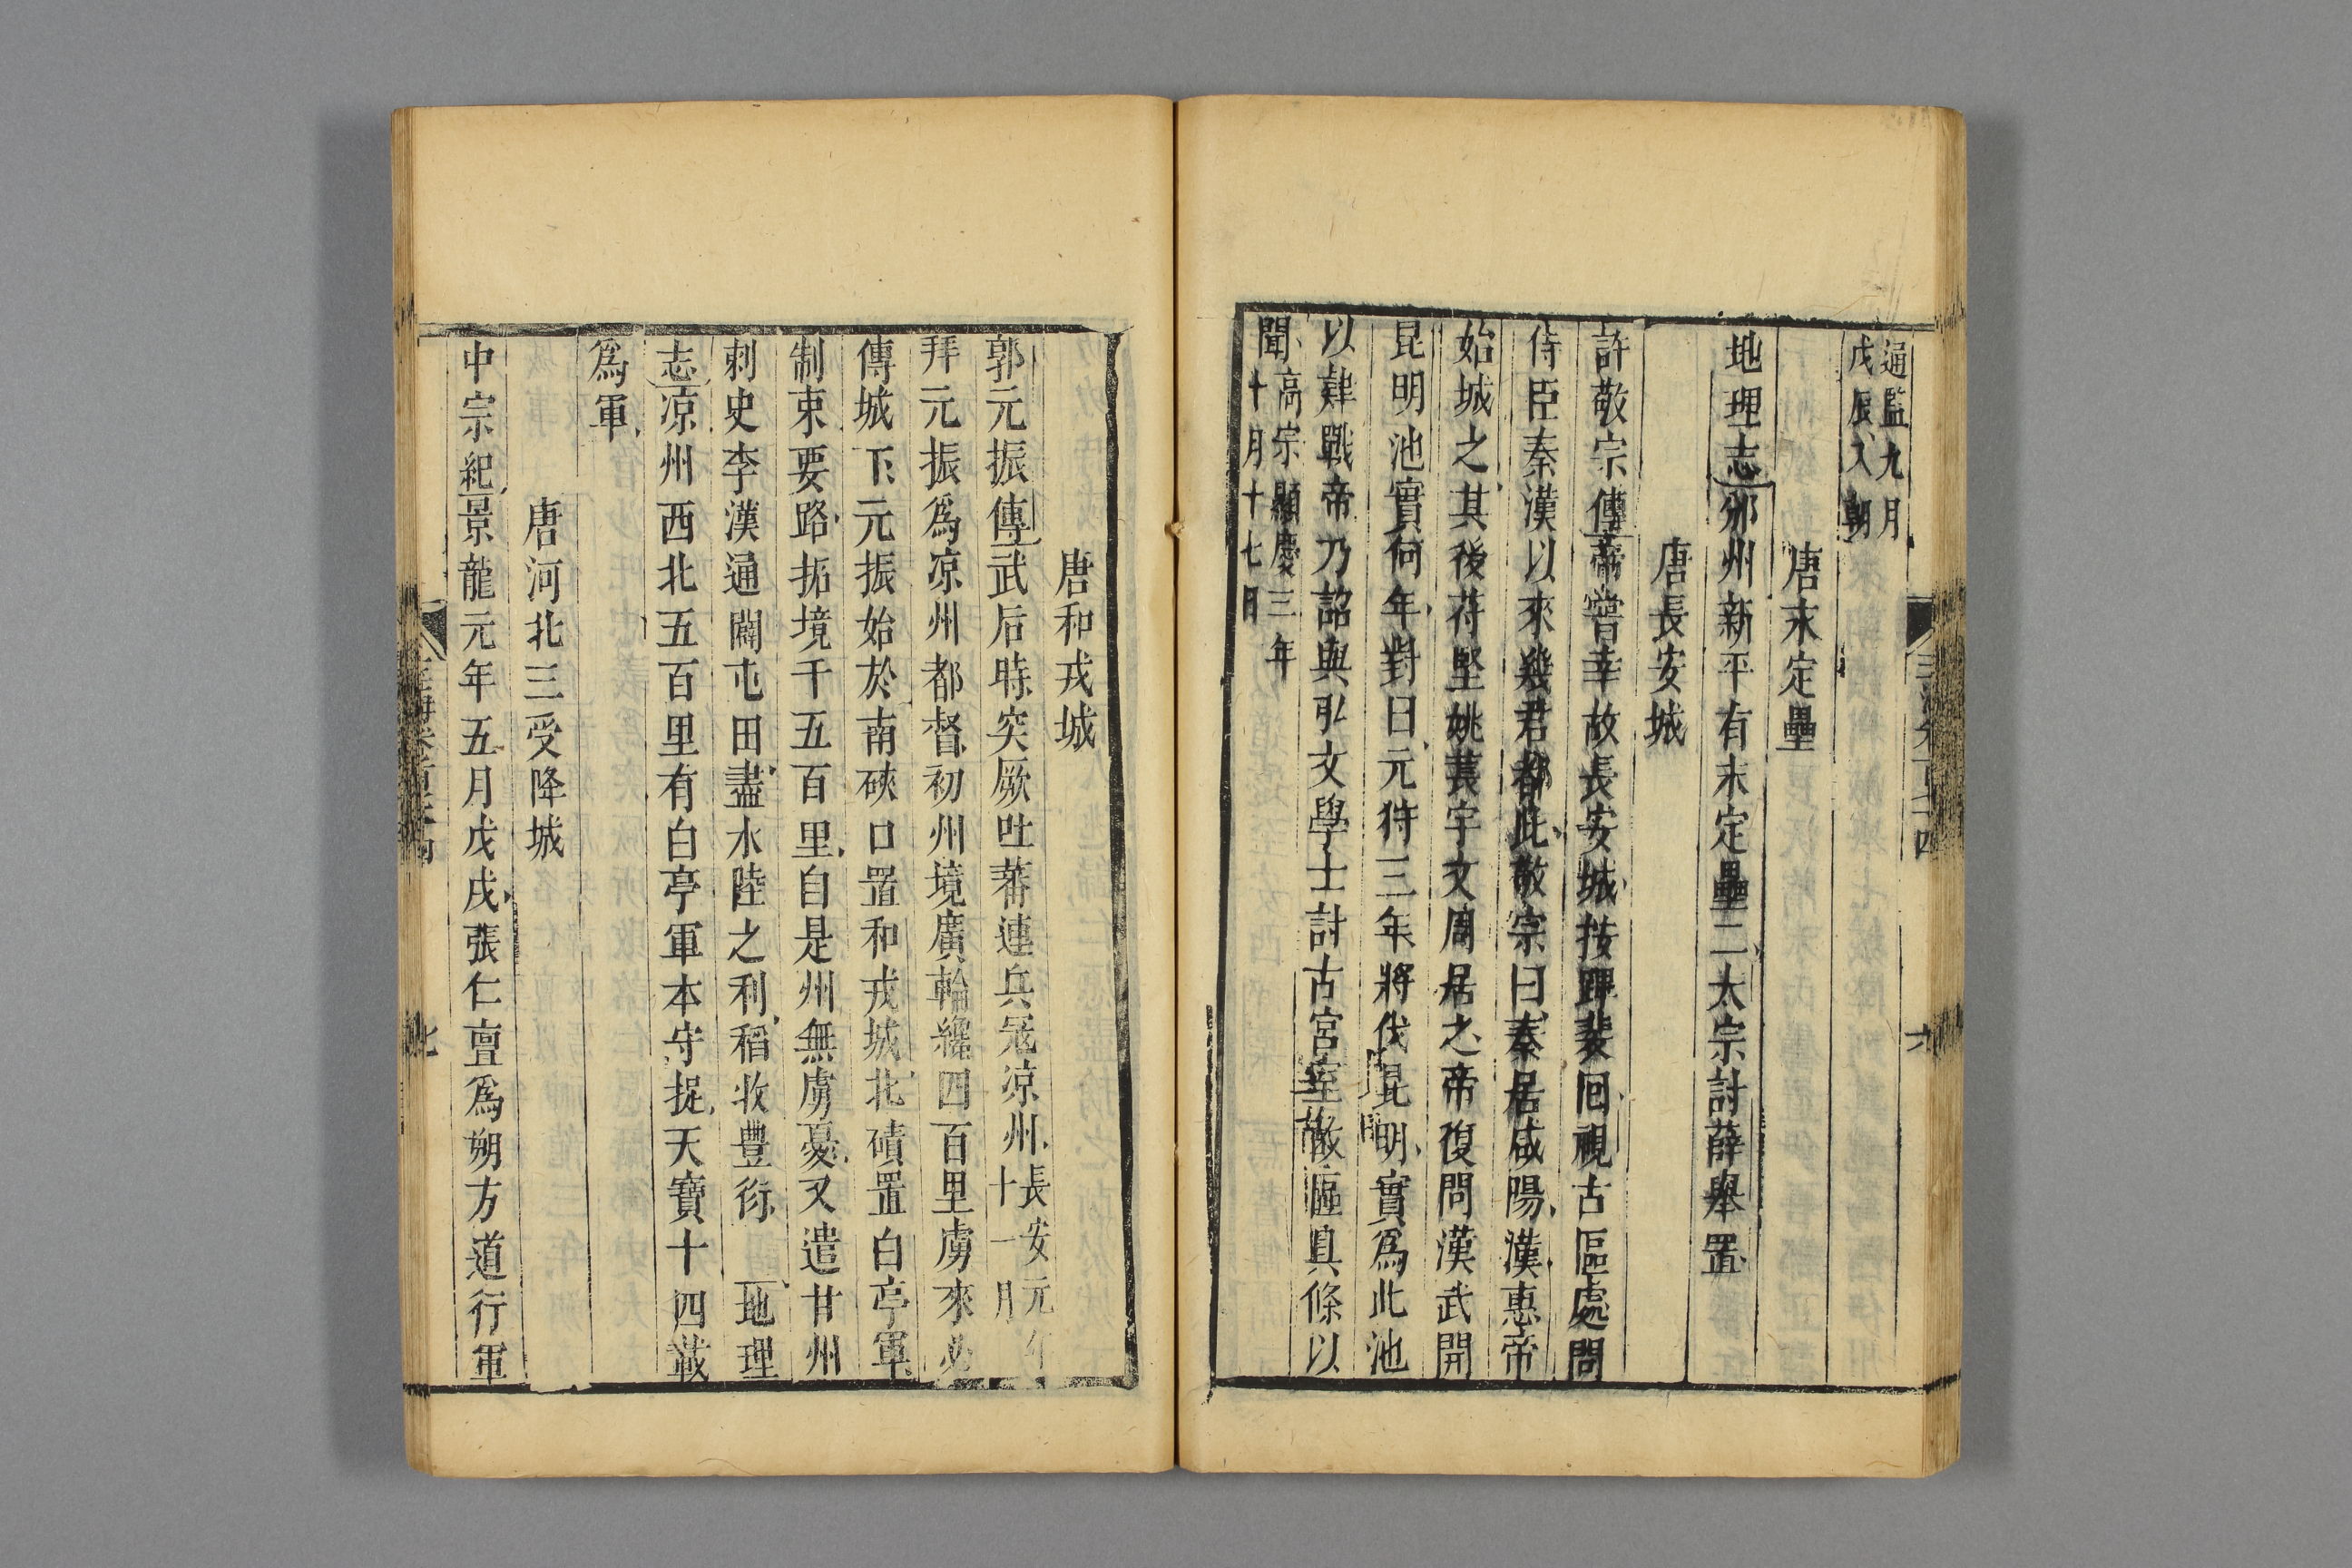 通監九月
戊辰入朝
唐末定壘
地理志邠州新平有末定壘二太宗討薛舉置
唐長安城
許敬宗傳帝嘗幸故長安城按蹕裴回視古區處問
侍臣秦漢以來幾君都此敬宗曰秦居咸陽漢惠帝
始城之其後苻堅姚萇宇文周居之帝復問漢武開
昆明池實何年對曰元狩三年將伐昆明實爲此池
以肄戰帝乃詔與弘文學士討古宮室故區具條以
聞高宗顯慶三年
十月十七日
唐和戎城
郭元振傳武后時突厥吐蕃連兵寇凉州長安元年
十一月
拜元振爲凉州都督初州境廣輪纔四百里虜來必
傳城下元振始於南硤口置和戎城北磧置白亭軍
制束要路拓境千五百里自是州無虜憂又遣甘州
刺史李漢通闢屯田盡水陸之利稻收豊衍地理
志凉州西北五百里有白亭軍本守捉天寶十四載
爲軍
唐河北三受降城
中宗紀景龍元年五月戊戌張仁亶爲朔方道行軍